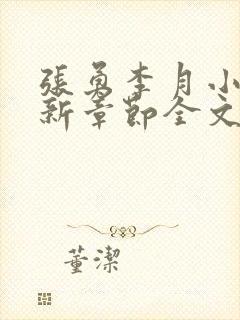 張勇李月小
新章節全文
董潔